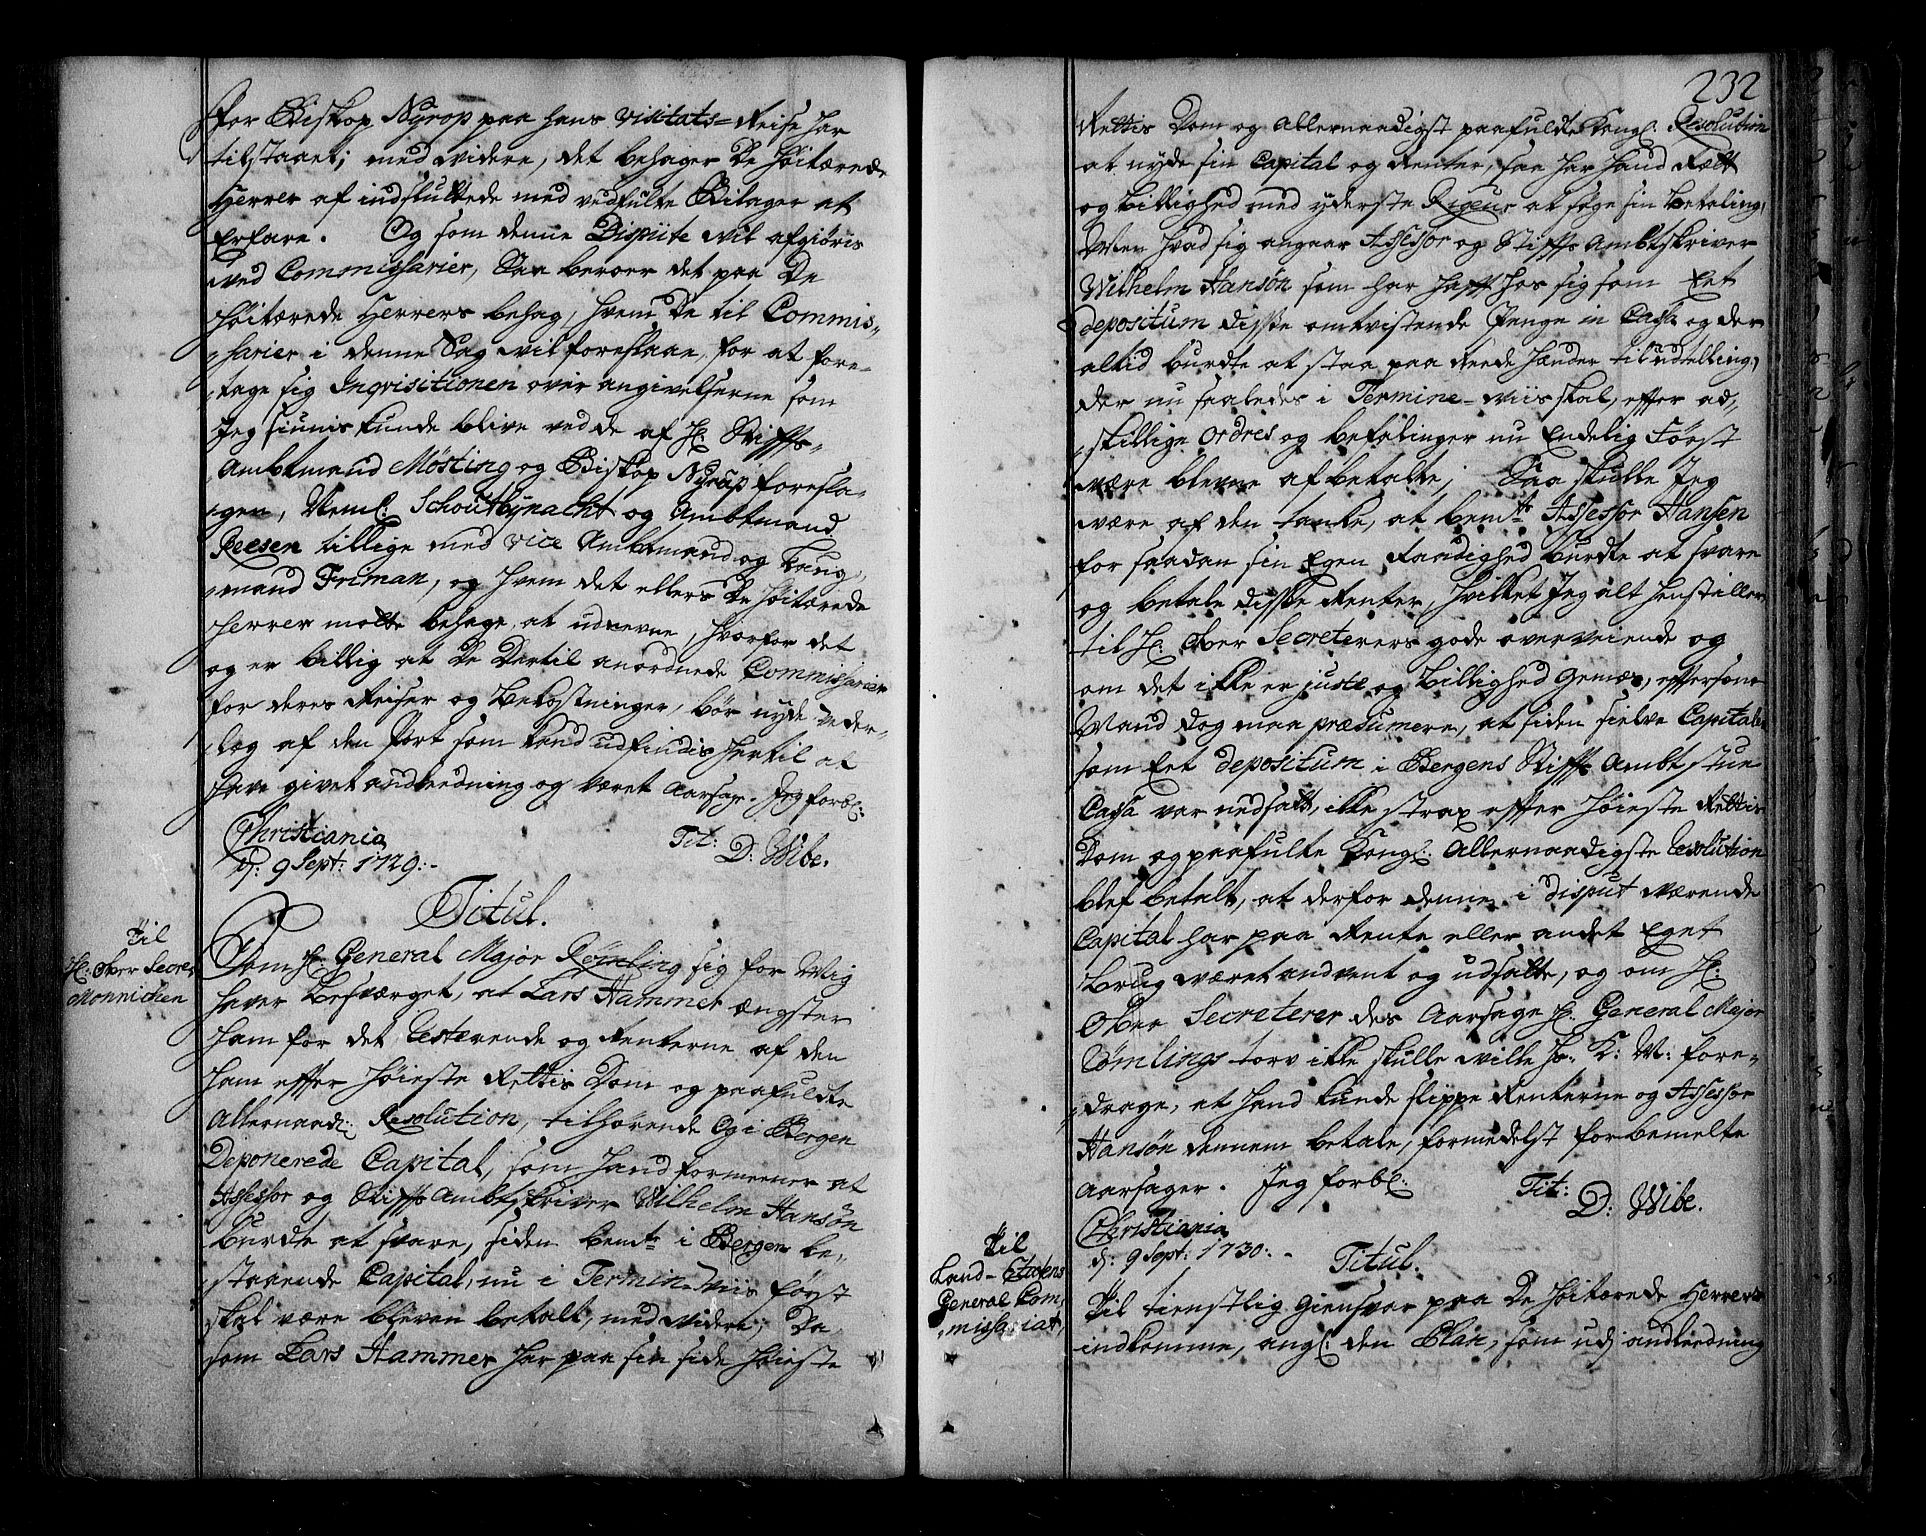 for Biskop Nyrop paa hans visitats-Reise har
tilstaaet; med videre, det behager De Höitærede
Herrer af indsluttede med vedfulte Bilager at
Erfare. Og som denne Dispute vil afgiøris
ved Commissarier, Saa beroer det paa De
Höitærede Herrers behag, hvem De til Commis-
sarier i denne Sag vil foreslaae, for at fore-
tage sig Inqvisitionen over angivelserne som
Jeg siunis kunde blive ved de af H: Stiffts-
Ambtmand Møsting og Biskop Nyrop foresla-
gen, Neml: Schoutbynacht og Ambtmand
Reesen tillige med vice Ambtmand og Laug-
mand Friman, og hvem det ellers De Höitærede
Herrer motte behage at udnevne, hvorfor det
og er billig at De Dertil anordnede Commissarier
for deres Reiser og bekostninger, bör nyde veder-
lag af den Part som kand udfindis hertil at
have givet andledning og været Aarsage. Jeg forbl:
Christiania
d: 9 Sept: 1729:- Tit: D: Wibe.
Titul.
Til
H: Ober Secret
Monnichen
Som H: General Major Rømling sig for Mig
haver besværget, at Lars Hammer ængster
ham for det Resterende og Renterne af den
ham effter Höieste Rettis Dom og paafuldte
Allernaad: Resolution, tilhörende og i Bergen
Deponerede Capital, som hand formeener at
Assessor og Stiffts Ambtskriver Wilhelm Hansøn
burde at svare, siden bemte i Bergen be-
staaende Capital, nu i Termin-viis först
skal være bleven betalt, med videre; Da
som Lars Hammer har paa sin side Höieste
232
Rettis Dom og Allernaadigst paafuldte Kongl: Resolution
at nyde sin Capital og Renter, saa har hand Rætt
og billighed med yderste Rigeur at søge sin betaling,
Men hvad sig angaar Assessor og Stiffts Ambtskriver
Wilhelm Hansøn som har hafft hos sig som Eet
depositum disse omtvistende Penge in Cassa og der
altid burdte at staa paa Reede hænder til udtelling,
der nu saaledes i Termine-viis skal, effter ad-
skillige Ordres og befalinger nu Endelig Först
være blevne afbetalte; Saa skulle Jeg
være af den tanke, at bemte Assessor Hansen
for saadan sin Egen Raadighed burdte at svare
og betale disse Renter, hvilket Jeg alt henstiller
til H: Ober Secreterers gode overveiende og
om det ikke er juste og Billighed Gemæs, efftersom
Mand dog maa præsumere, at siden sielve Capitalen
som Eet depositum i Bergens Stiffts Ambtstue
Cassa var nedsatt, ikke strax effter Höieste Rettis
Dom og paafulte Kongl: Allernaadigste Resolution
blef betalt, at derfor denne i disput værende
Capital har paa Rente eller andet Eget
brug været andvent og udsatte, og om H:
Ober Secreterer des Aarsage H: General Major
Römlings torv ikke skulle ville Hs: K: M: fore-
drage, at hand kunde slippe Renterne og Assessor
Hansøn dennem betale, formedelst forbemelte
Aarsager. Jeg forbl: Tit: D: Wibe.
Christiania
d: 9 Sept: 1730:-
Titul.
Til
Land-Etatens
General Com-
missariat,
Til tienstlig Giensvar paa De Höitærede Herrers
indkomne, angl: den Plan, som udj andledning